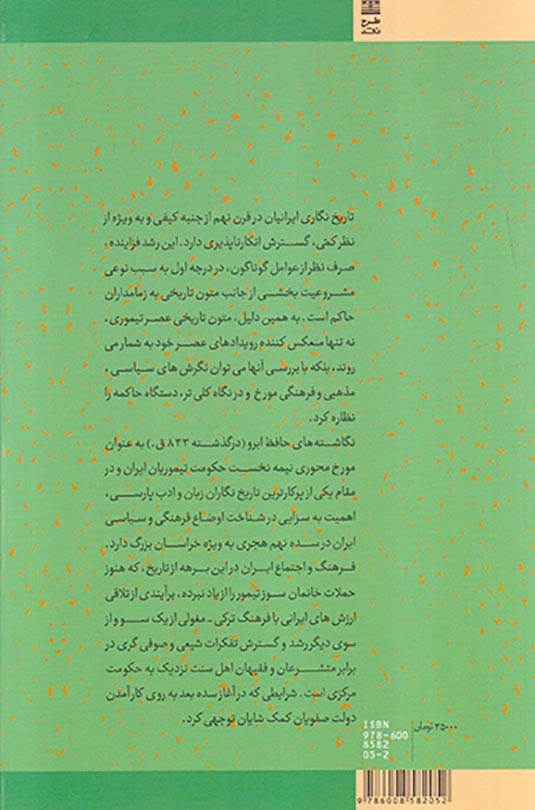 طرح
نقد
تاریخ نگاری ایرانیان در قرن نهم از جنبه کیفی و به ویژه از
نظر کمّی، گسترش انکارناپذیری دارد. این رشد فزاینده،
صرف نظر از عوامل گوناگون، در درجه اول به سبب نوعی
مشروعیت بخشی از جانب متون تاریخی به زمامداران
حاکم است. به همین دلیل، متون تاریخی عصر تیموری،
نه تنها منعکس کننده رویدادهای عصر خود به شمار می
روند، بلکه با بررسی آنها می توان نگرش های سیاسی،
مذهبی و فرهنگی مورخ و در نگاه کلی تر، دستگاه حاکمه را
نظاره کرد.
نگاشته های حافظ ابرو (درگذشته ۸۳۳ ق.) به عنوان
مورخ محوری نیمه نخست حکومت تیموریان ایران و در
مقام یکی از پرکارترین تاریخ نگاران زبان و ادب پارسی،
اهمیت به سزایی در شناخت اوضاع فرهنگی و سیاسی
ایران در سده نهم هجری به ویژه خراسان بزرگ دارد.
فرهنگ و اجتماع ایران در این برهه از تاریخ، که هنوز
حملات خانمان سوز تیمور را از یاد نبرده، برآیندی از تلاقی
ارزش های ایرانی با فرهنگ ترکی - مغولی از یک سو و از
سوی دیگر رشد و گسترش تفکرات شیعی و صوفی گری در
برابر متشرعان و فقیهان اهل سنت نزدیک به حکومت
مرکزی است. شرایطی که در آغاز سده بعد به روی کار آمدن
دولت صفویان کمک شایان توجهی کرد.
۳۵۰۰۰ تومان
ISBN
978-600
8582
05-2
9 786008 582052